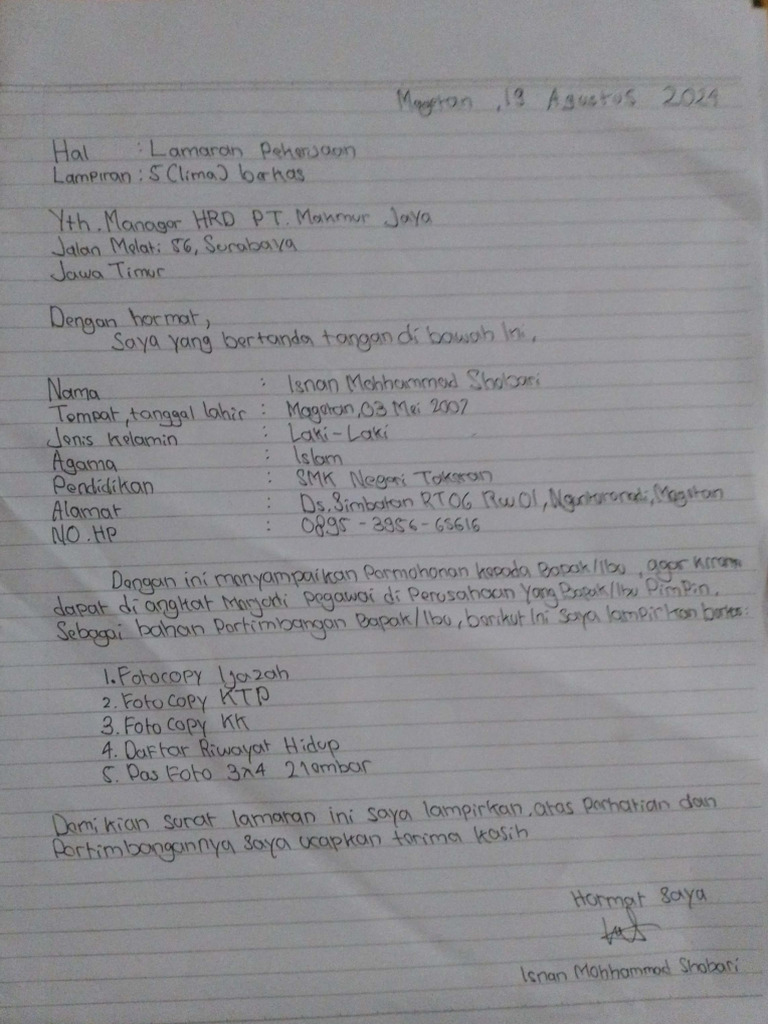 Magetan, 19 Agustus 2024
Hal : Lamaran Pekerjaan
Lampiran : 5 (lima) berkas
Yth. Manager HRD PT. Makmur Jaya
Jalan Melati 56, Surabaya
Jawa Timur
Dengan hormat,
Saya yang bertanda tangan di bawah ini.
Nama : Isnan Mohhammad Shobari
Tempat, tanggal lahir : Magetan, 03 Mei 2007
Jenis kelamin : Laki-Laki
Agama : Islam
Pendidikan : SMK Negeri Takeran
Alamat : Ds. Simbatan RT06 RW01, Nguntoronadi, Magetan
NO. HP : 0895-3956-65616
Dengan ini menyampaikan Permohonan kepada Bapak/Ibu, agar
dapat di angkat Menjadi Pegawai di Perusahaan Yang Bapak/Ibu PimPin.
Sebagai bahan Pertimbangan Bapak/Ibu, berikut Ini Saya lampirkan berkas:
1. Fotocopy Ijazah
2. Foto copy KTP
3. Foto copy KK
4. Daftar Riwayat Hidup
5. Pas Foto 3x4 2 lembar
Demikian surat lamaran ini saya lampirkan. atas perhatian dan
Pertimbangannya saya ucapkan terima kasih
Hormat Saya
Isnan Mohhammad Shobari